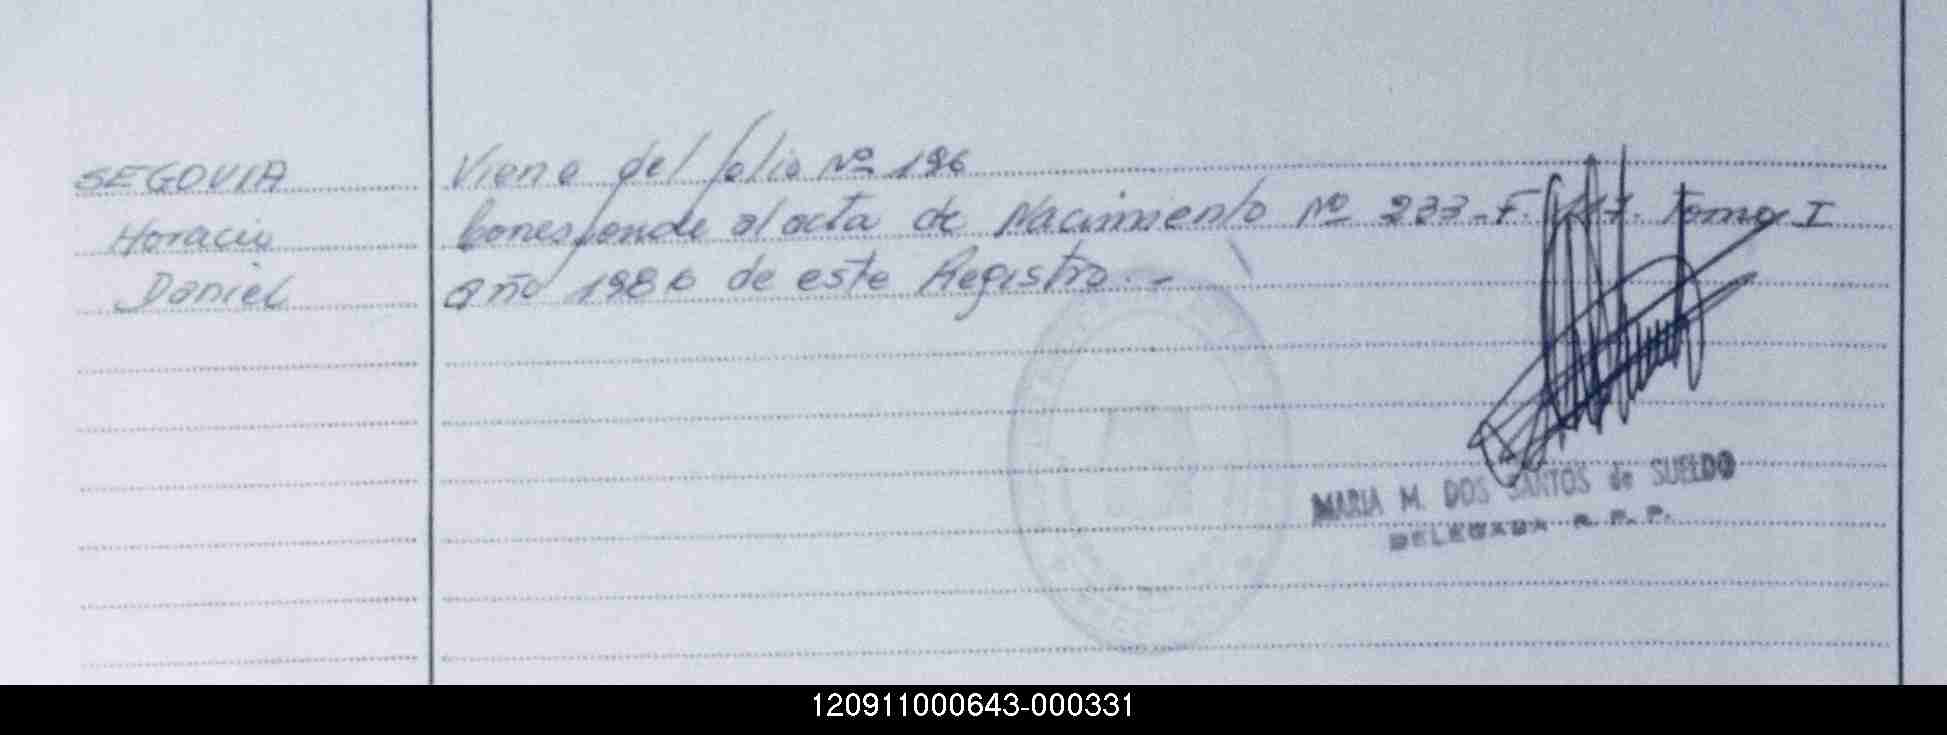 SEGOVIA
Horacio
Daniel
Viene del folio Nº 196
Corresponde al acta de Nacimiento Nº 233-F. 117. Tomo I
año 1986 de este Registro.-
MARIA M. DOS SANTOS de SUELDO
DELEGADA R. P. P.
120911000643-000331